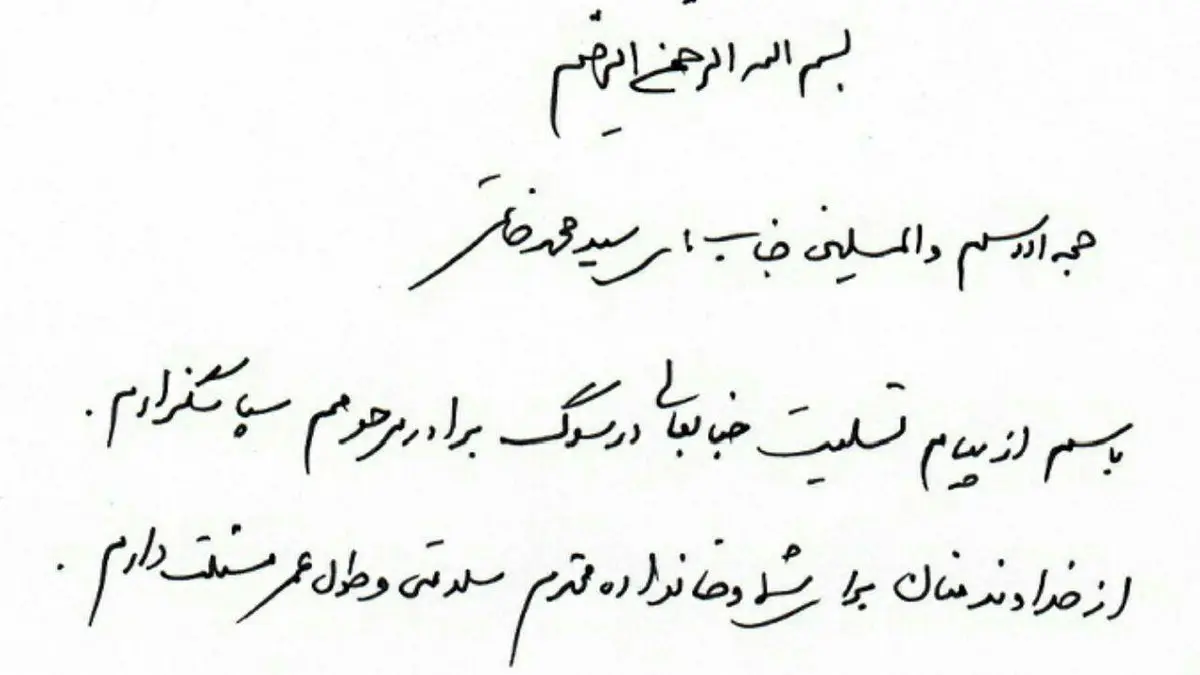 بسم الله الرحمن الرحیم
حجه الاسلام والمسلمین جناب آقای سید محمد خاتمی
باسلام از پیام تسلیت جنابعالی در سوگ برادر مرحومم سپاسگزارم.
از خداوند منان برای شما و خانواده محترم سلامتی و طول عمر مسئلت دارم.